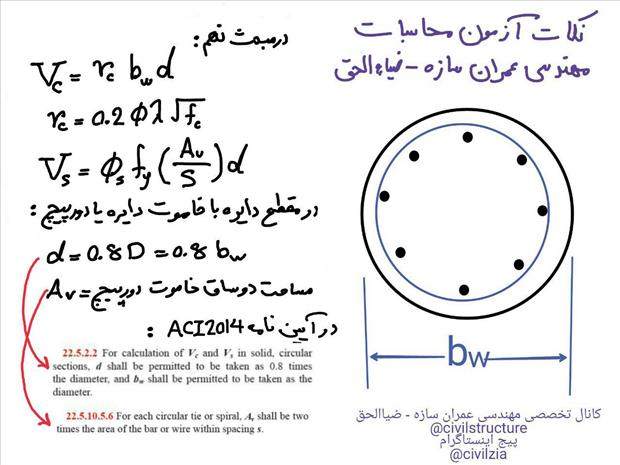 نکات آزمون محاسبات
مهندسی عمران سازه - ضیاءالحق
در مبحث نهم:
Vc = νc bw d
νc = 0.2 Φ λ √fc
Vs = Φs fy (Av/S) d
در مقطع دایره با خاموت دایره یا دورپیچ:
d = 0.8 D = 0.8 bw
Av = مساحت دو ساق خاموت دورپیچ
در آیین نامه ACI2014 :
22.5.2.2 For calculation of Vc and Vs in solid, circular
sections, d shall be permitted to be taken as 0.8 times
the diameter, and bw shall be permitted to be taken as the
diameter.
22.5.10.5.6 For each circular tie or spiral, Av shall be two
times the area of the bar or wire within spacing s.
bw
کانال تخصصی مهندسی عمران سازه - ضیاالحق
@civilstructure
پیج اینستاگرام
@civilzia